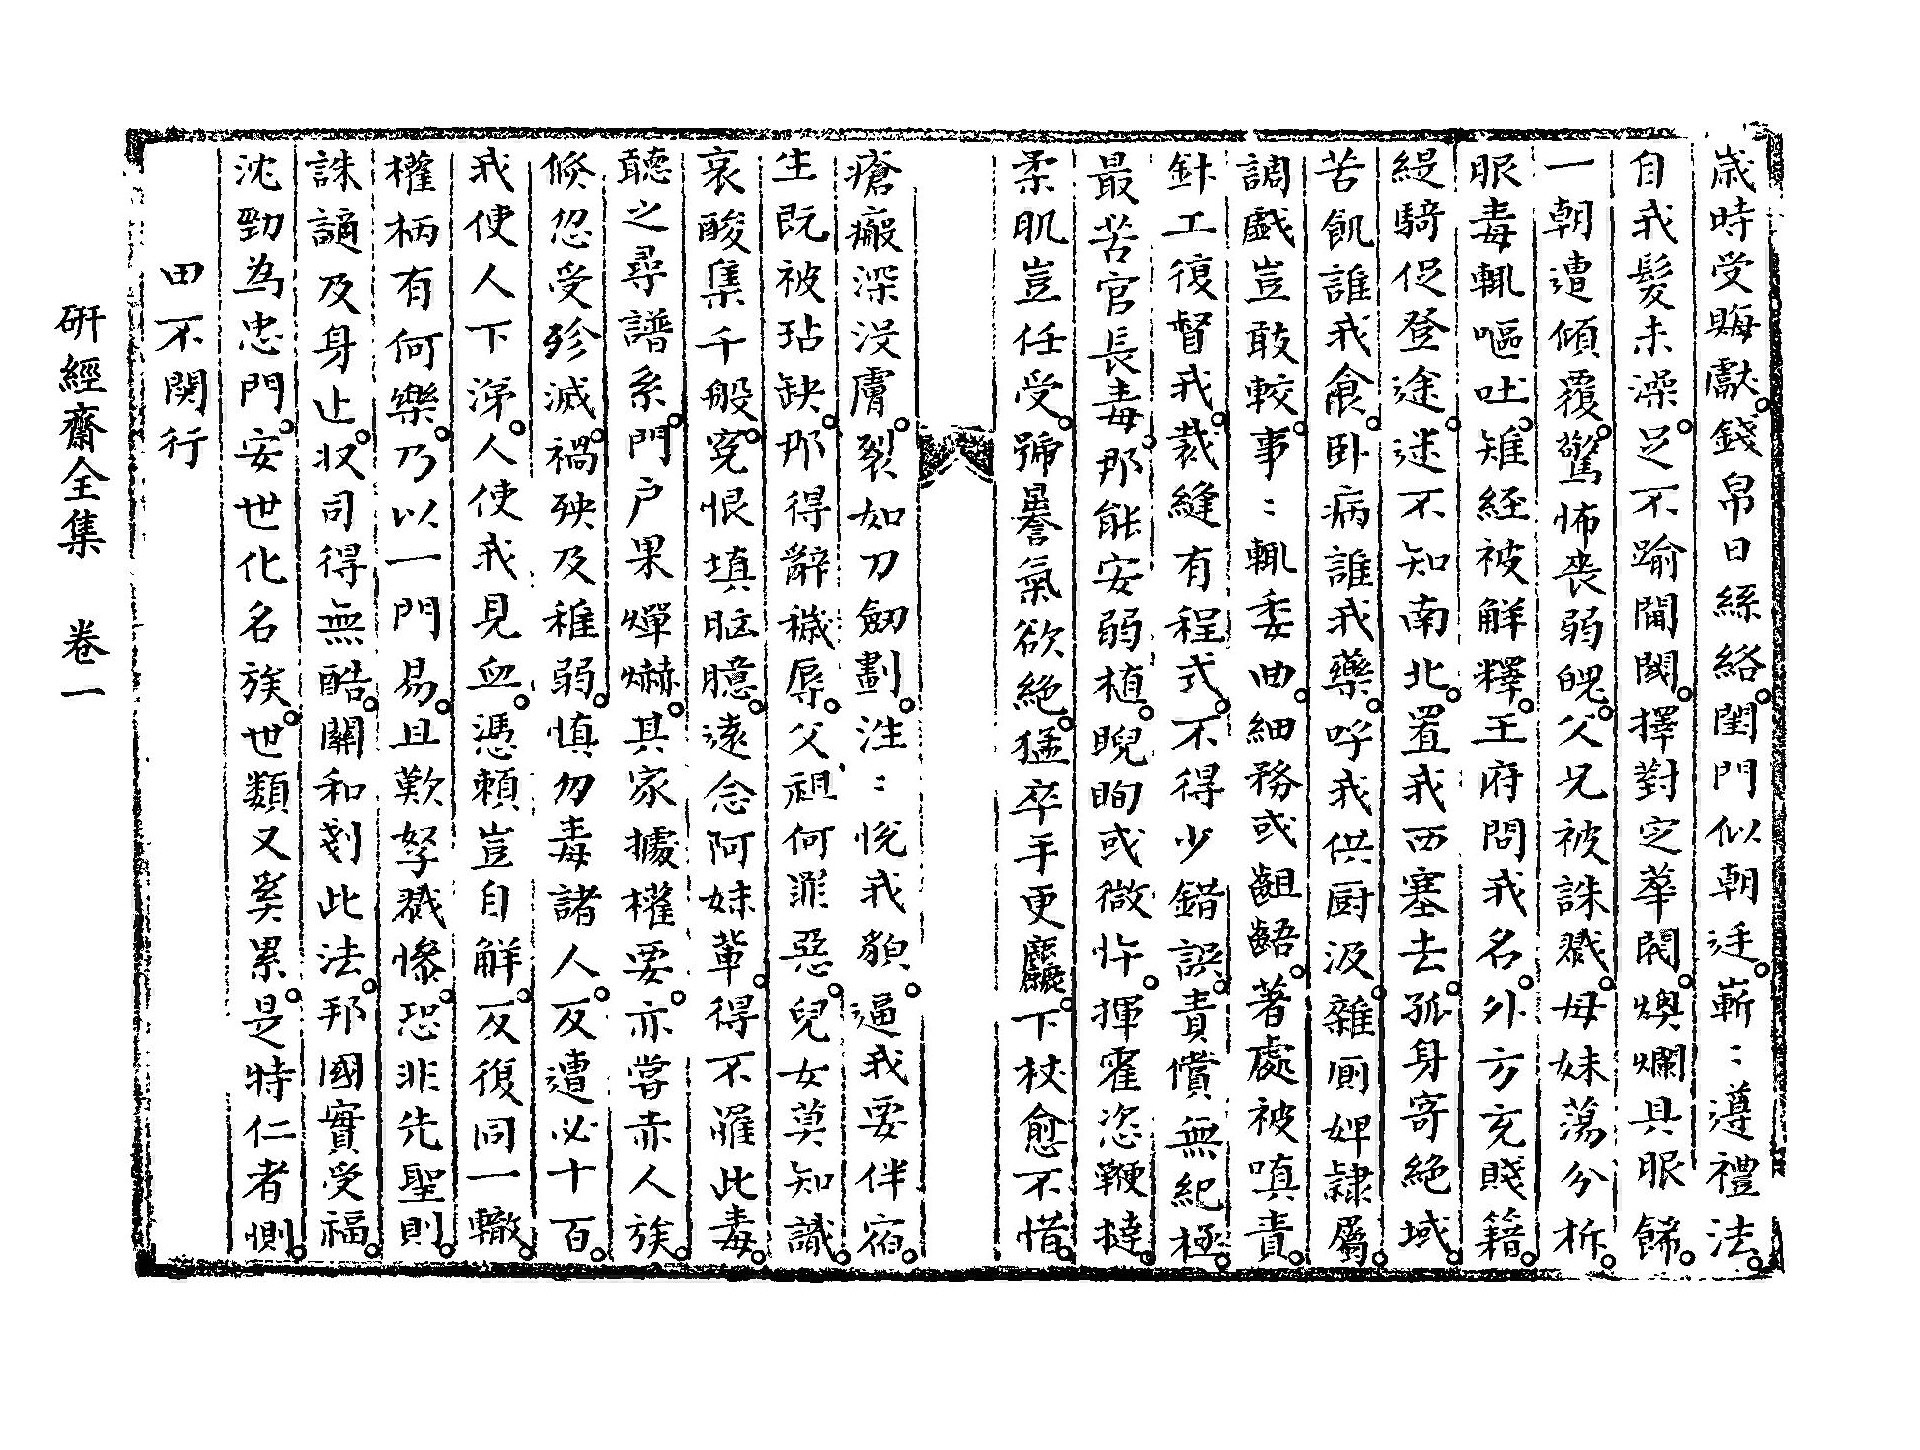 歲時受賜獻錢帛日絲絡閨門似朝廷嶄〻遵禮法
自我髮未澡足不踰閫閾擇對定華閥燠爛具眼餙
一朝遭傾覆驚怖喪弱魄父兄被誅戮母妹蕩分柝
眼毒輒嘔吐雉経被觧釋王府問我名外方充賤籍
緹騎促登途迷不知南北置我西塞去孤身寄絶域
苦飢誰我飡卧病誰我藥呼我供厨汲雜厠婢隷屬
調戱豈敢較事〻輒委曲細務或齟齬著處被嗔責
針工復督我裁縫有程式不得少錯誤責償無紀極
最苦官長毒那能安弱植睨眴或微忤揮霍恣鞭撻
柔肌豈任受號謈氣欲絶猛卒手更麤下杖愈不惜
瘡瘢深没膚裂如刀劒劃泩〻悅我貌逼我要伴宿
生既被玷缺那得辭穢辱父祖何罪惡兒女莫知識
哀酸集千般寃恨塡胸臆遠念阿妹輩得不罹此毒
聽之尋譜系門户果燀爀其家據權要亦嘗赤人族
倐忽受殄滅禍殃及稚弱愼勿毒諸人反遭必十百
我使人下涕人使我見血憑頼豈自觧反復同一轍
權柄有何樂乃以一門易且歎孥戮慘恐非先聖則
誅謫及身止収司得無酷關和刻此法邦國實受福
沈勁為忠門安世化名族世類又奚累是特仁者惻
田不関行
硏經齋全集 卷一